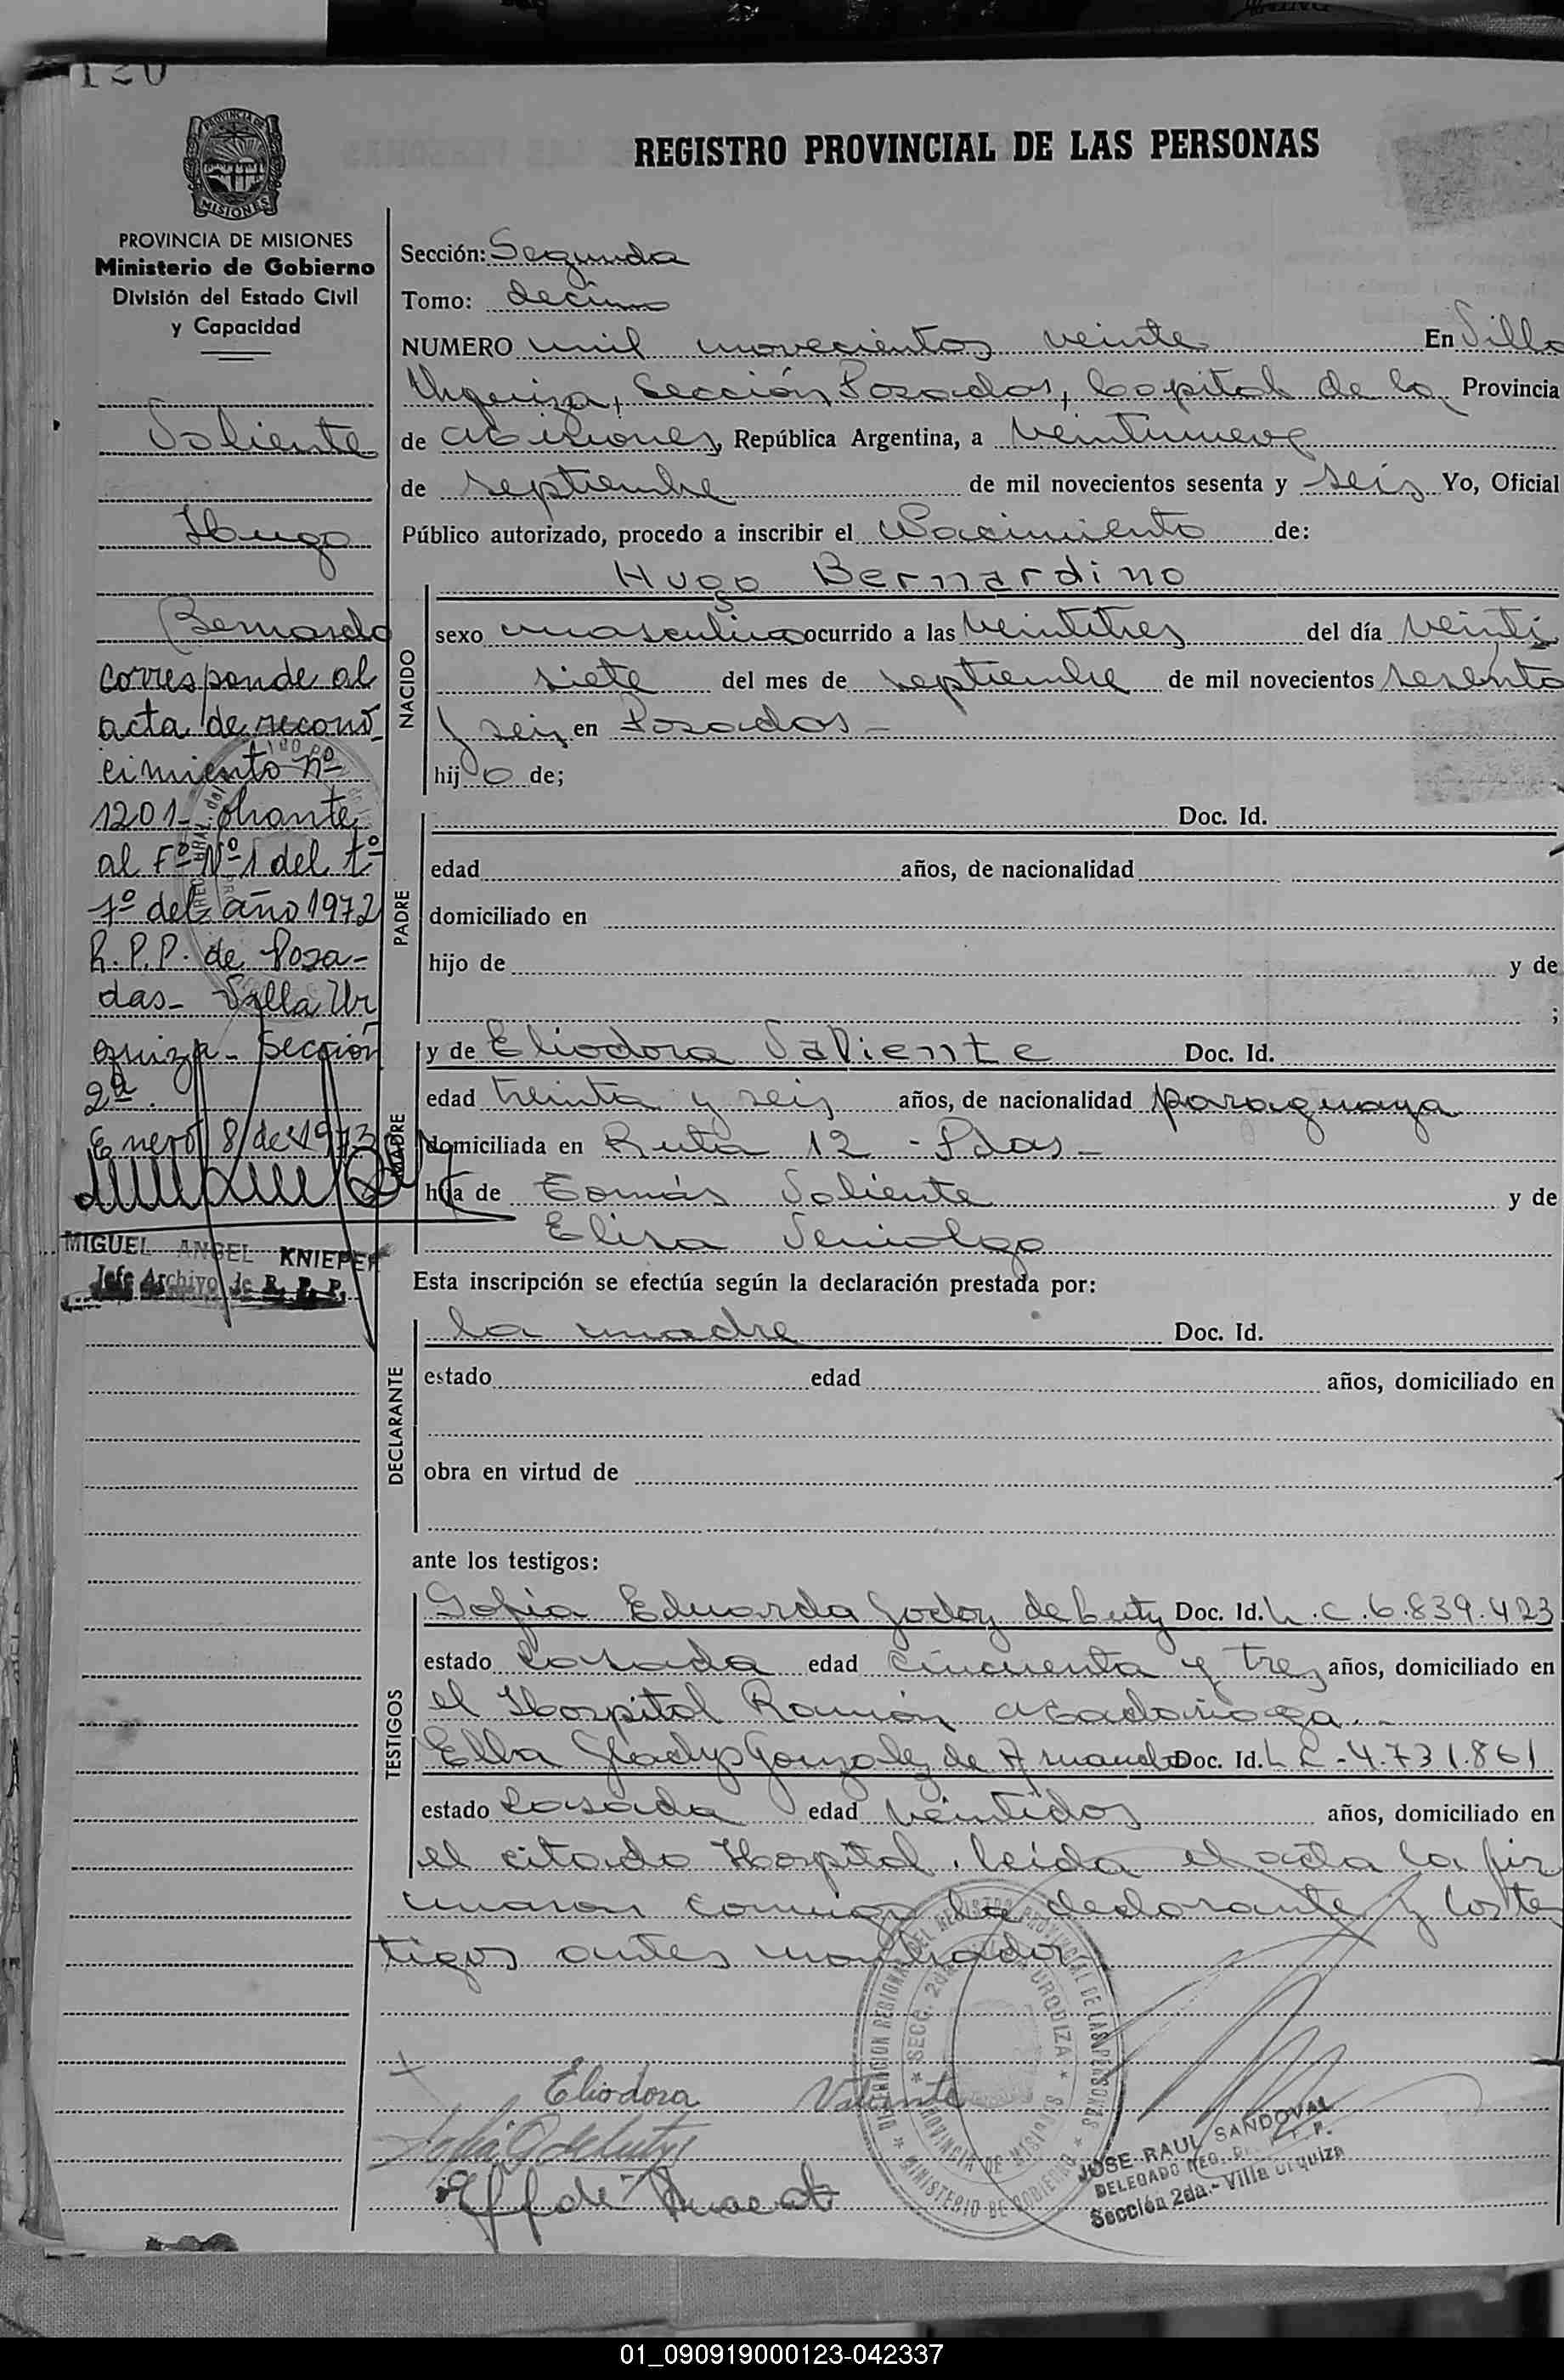 120
PROVINCIA DE
MISIONES
REGISTRO PROVINCIAL DE LAS PERSONAS
PROVINCIA DE MISIONES
Ministerio de Gobierno
División del Estado Civil
y Capacidad
Valiente
Hugo
Bernardo
corresponde al
acta de recono
cimiento nº
1201- obrante
al Fº Nº 1 del tº
1º del año 1972
R.P.P. de Posa-
das- Villa Ur
quiza- Sección
2ª.
Enero 8 de 1973
MIGUEL ANGEL KNIEPER
Jefe Archivo de R. P. P.
Sección: Segunda
Tomo: decimo
NUMERO mil novecientos veinte En Villa
Urquiza, Sección Posadas, Capital de la Provincia
de Misiones, República Argentina, a veintinueve
de septiembre de mil novecientos sesenta y seis Yo, Oficial
Público autorizado, procedo a inscribir el Nacimiento de:
Hugo Bernardino
NACIDO
sexo masculino ocurrido a las veintitres del día veinti
siete del mes de septiembre de mil novecientos sesenta
y seis en Posadas-
hijo de;
PADRE
Doc. Id.
edad años, de nacionalidad
domiciliado en
hijo de y de
;
MADRE
y de Eliodora Valiente Doc. Id.
edad treinta y seis años, de nacionalidad paraguaya
domiciliada en Ruta 12 - Pdas-
hija de Tomás Valiente y de
Elisa
Esta inscripción se efectúa según la declaración prestada por:
DECLARANTE
la madre Doc. Id.
estado edad años, domiciliado en
obra en virtud de
ante los testigos:
TESTIGOS
Sofia Eduarda Godoy de Doc. Id. L.C. 6.839.423
estado casada edad cincuenta y tres años, domiciliado en
el Hospital Ramón Madariaga.-
Elba Gladys Gonzalez de Doc. Id. L C - 4.731.861
estado casada edad veintidos años, domiciliado en
el citado Hospital. leída el acta la fir
maron conmigo la declarante y los tes
tigos antes nombrados
Eliodora Valiente
DELEGACION REGIONAL DEL REGISTRO PROVINCIAL DE LAS PERSONAS
* MINISTERIO DE GOBIERNO *
* SECC. 2da. URQUIZA *
PROVINCIA DE MISIONES
JOSE RAUL SANDOVAL
DELEGADO REG. P.
Sección 2da.- Villa Urquiza
01_090919000123-042337